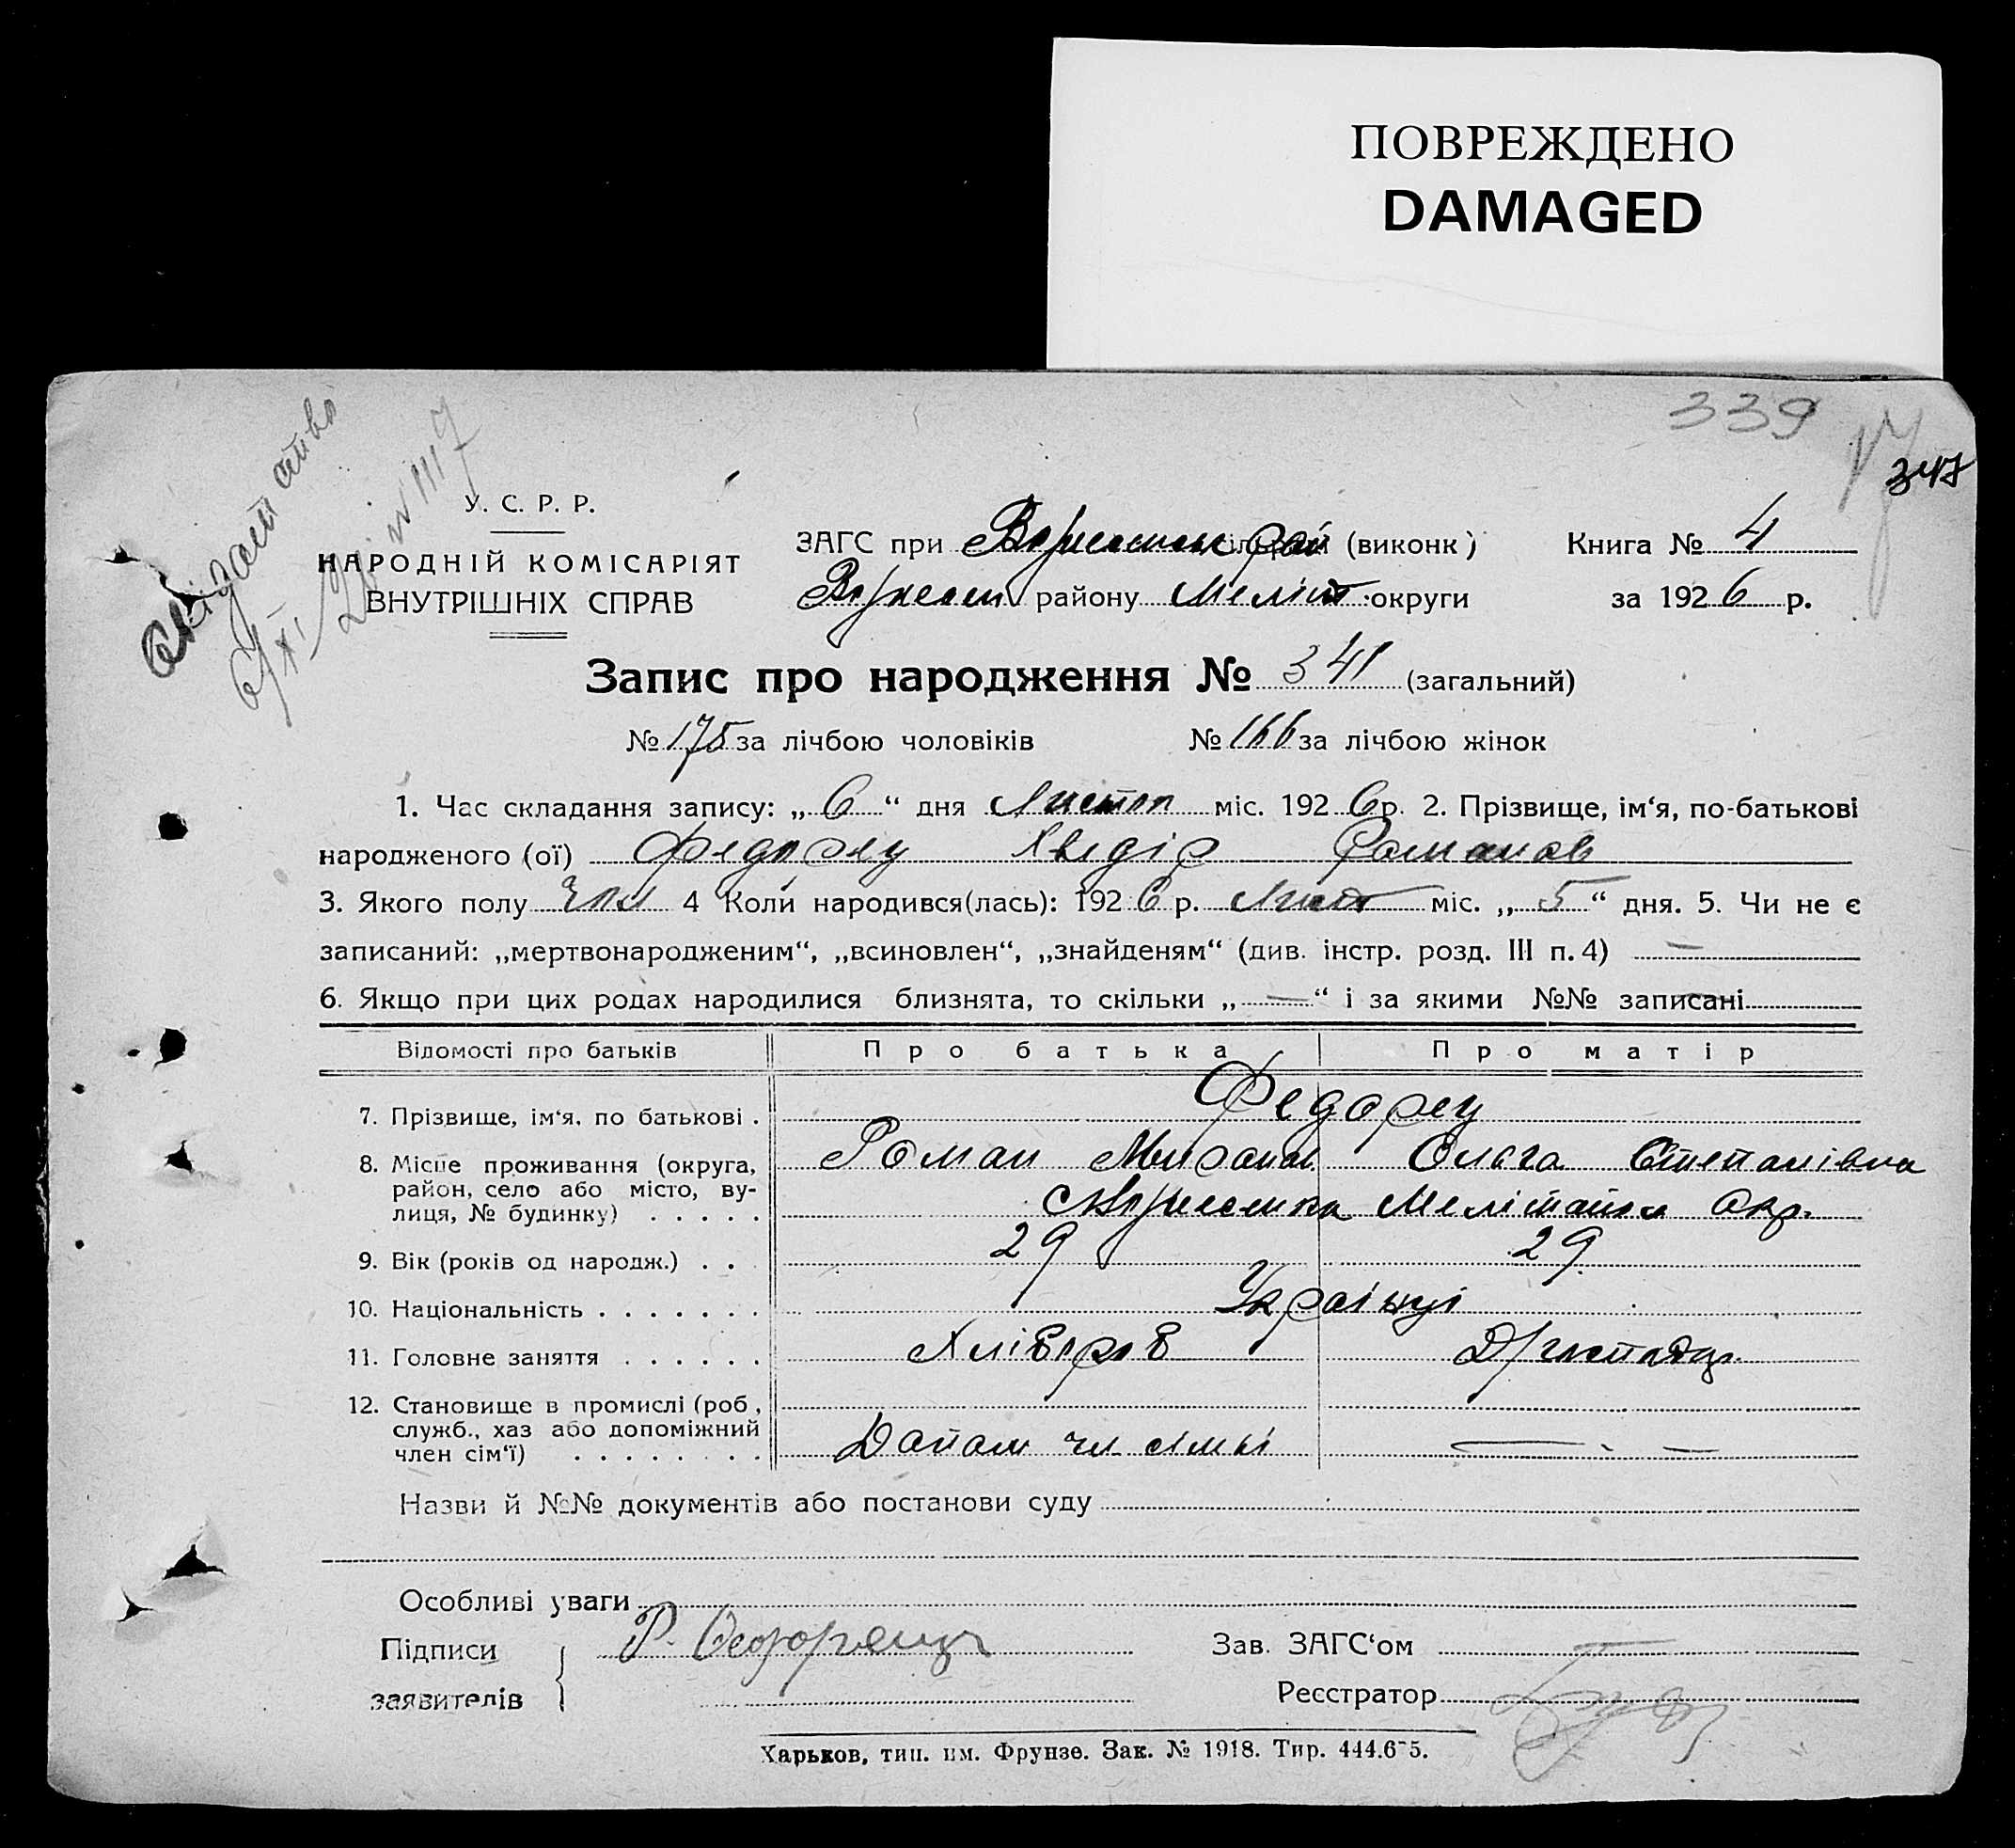 ПОВРЕЖДЕНО
DAMAGED
339
347
У. С. Р. Р.
НАРОДНІЙ КОМІСАРІЯТ
ВНУТРІШНІХ СПРАВ
ЗАГС при рай (виконк)
Книга № 4
району Меліт округи
за 1926 р.
Запис про народження № 341 (загальний)
№ 175 за лічбою чоловіків № 166 за лічбою жінок
1. Час складання запису: „ 6 “ дня Листоп міс. 1926 р. 2. Прізвище, ім‘я, по-батькові
народженого (ої) Федорец Хведір Романов
3. Якого полу чол 4 Коли народився(лась): 1926 р. Лист міс. „ 5 “ дня. 5. Чи не є
записаний: „мертвонародженим“, „всиновлен“, „знайденям“ (див. інстр. розд. III п. 4) —
6. Якщо при цих родах народилися близнята, то скільки „ — “ і за якими №№ записані
Відомості про батьків Про батька Про матір
Федорец
7. Прізвище, ім‘я, по батькові . Роман Олга Степанівна
8. Місце проживання (округа,
район, село або місто, ву-
лиця, № будинку) . . . . . окр.
9. Вік (років од народж.) . . 29 29
10. Національність . . . . . . . Українці
11. Головне заняття . . . . . . Хлібороб
12. Становище в промислі (роб,
служб., хаз або допоміжний
член сім‘ї) . . . . . . . . Допом чл сімьі —
Назви й №№ документів або постанови суду
Особливі уваги
Підписи Р. Зав. ЗАГС‘ом —
заявителів Реєстратор
Харьков, тип. им. Фрунзе. Зак. № 1918. Тир. 444.675.